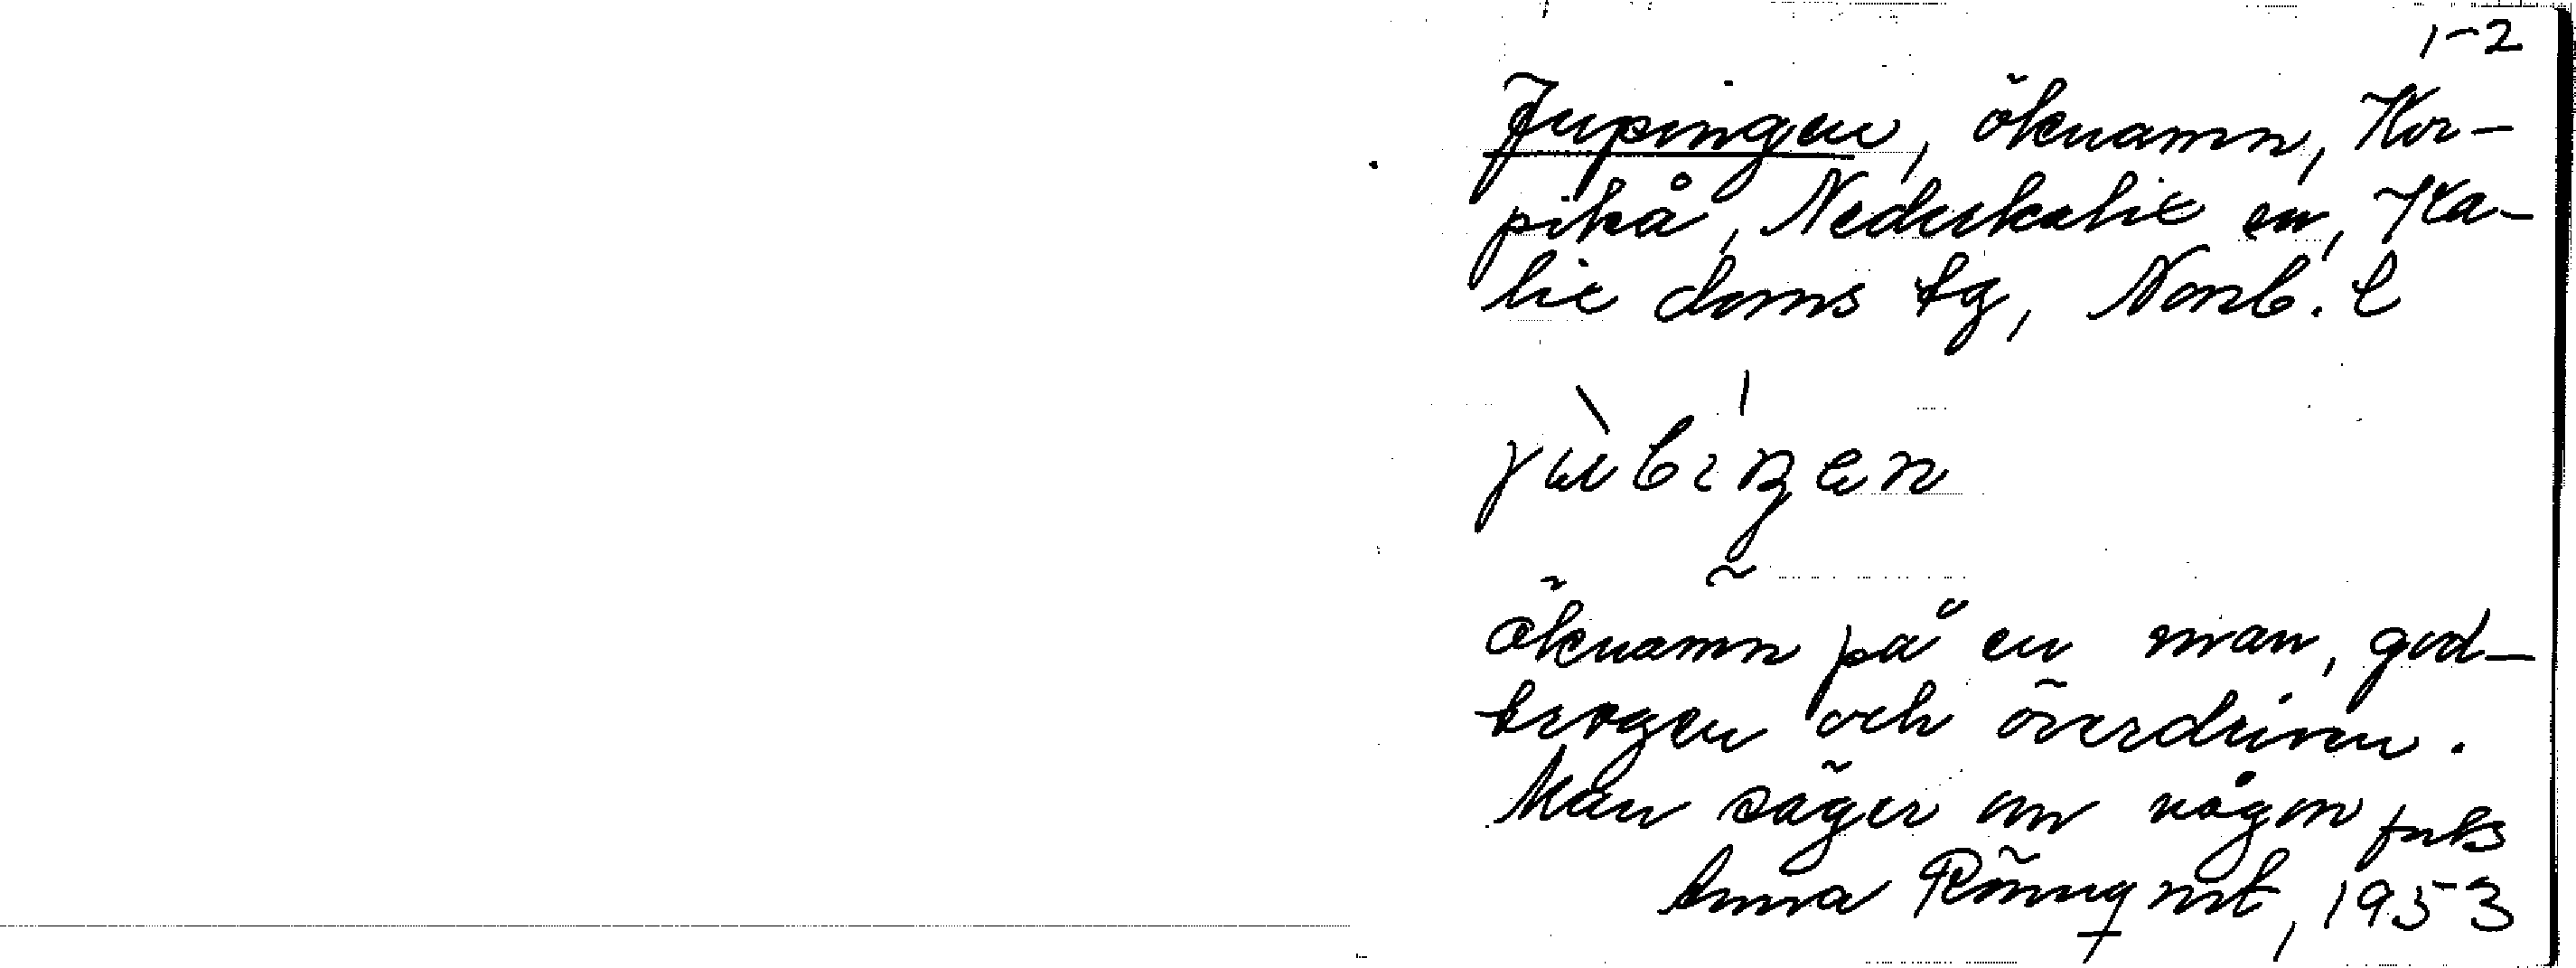 1-2
Jupingen, öknamn, Kor-
pikå, Nederkalix sn, Ka-
lix doms tg, Norrb. l
öknamn på en man, god-
trogen och överdriven.
Man säger om någon forts
Anna Rönnqvist, 1953